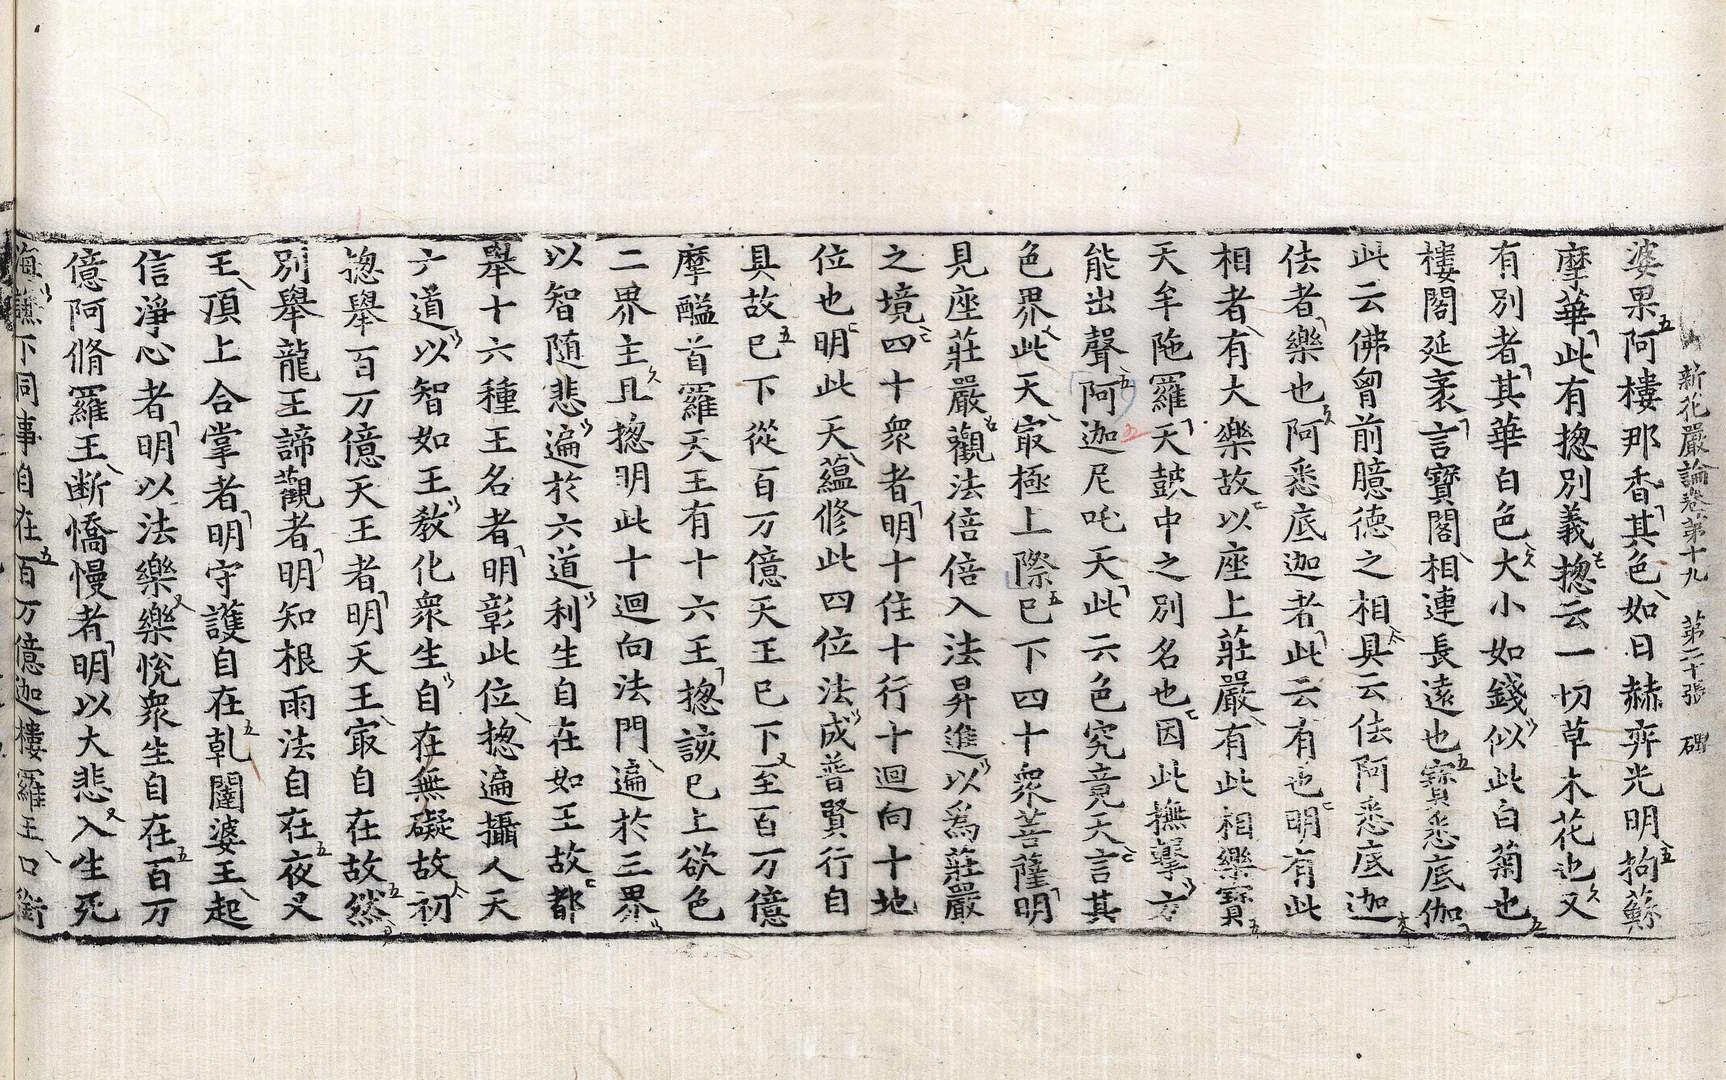 新花嚴論卷第十九　第二十張　碑
婆果阿樓那香其色如日赫弈光明拘蘇
摩華此有捴別義捴云一切草木花也又
有別者其華白色大小如錢似此白菊也
樓閣延袤言寶閣相連長遠也寶悉底伽
此云佛曾前臆德之相具云佉阿悉底迦
佉者樂也阿悉底迦者此云有也明有此
相者有大樂故以座上莊嚴有此相樂寶
天牟陁羅天鼓中之別名也因此撫擊方
能出聲阿迦尼吒天此云色究竟天言其
色界此天㝡極上際已下四十衆菩薩明
見座莊嚴觀法倍倍入法昇進以爲莊嚴
之境四十衆者明十住十行十迴向十地
位也明此天蘊修此四位法成普賢行自
具故已下從百万億天王已下至百万億
摩醯首羅天王有十六王捴該已上欲色
二界主且捴明此十迴向法門遍於三界
以智随悲遍於六道利生自在如王故都
舉十六種王名者明彰此位捴遍攝人天
六道以智如王教化衆生自在無礙故初
捴舉百万億天王者明天王㝡自在故然
別舉龍王諦觀者明知根雨法自在夜叉
王頂上合掌者明守護自在乹闥婆王起
信淨心者明以法樂樂悅衆生自在百万
億阿脩羅王断憍慢者明以大悲入生死
海謙下同事自在百万億迦樓羅王口銜